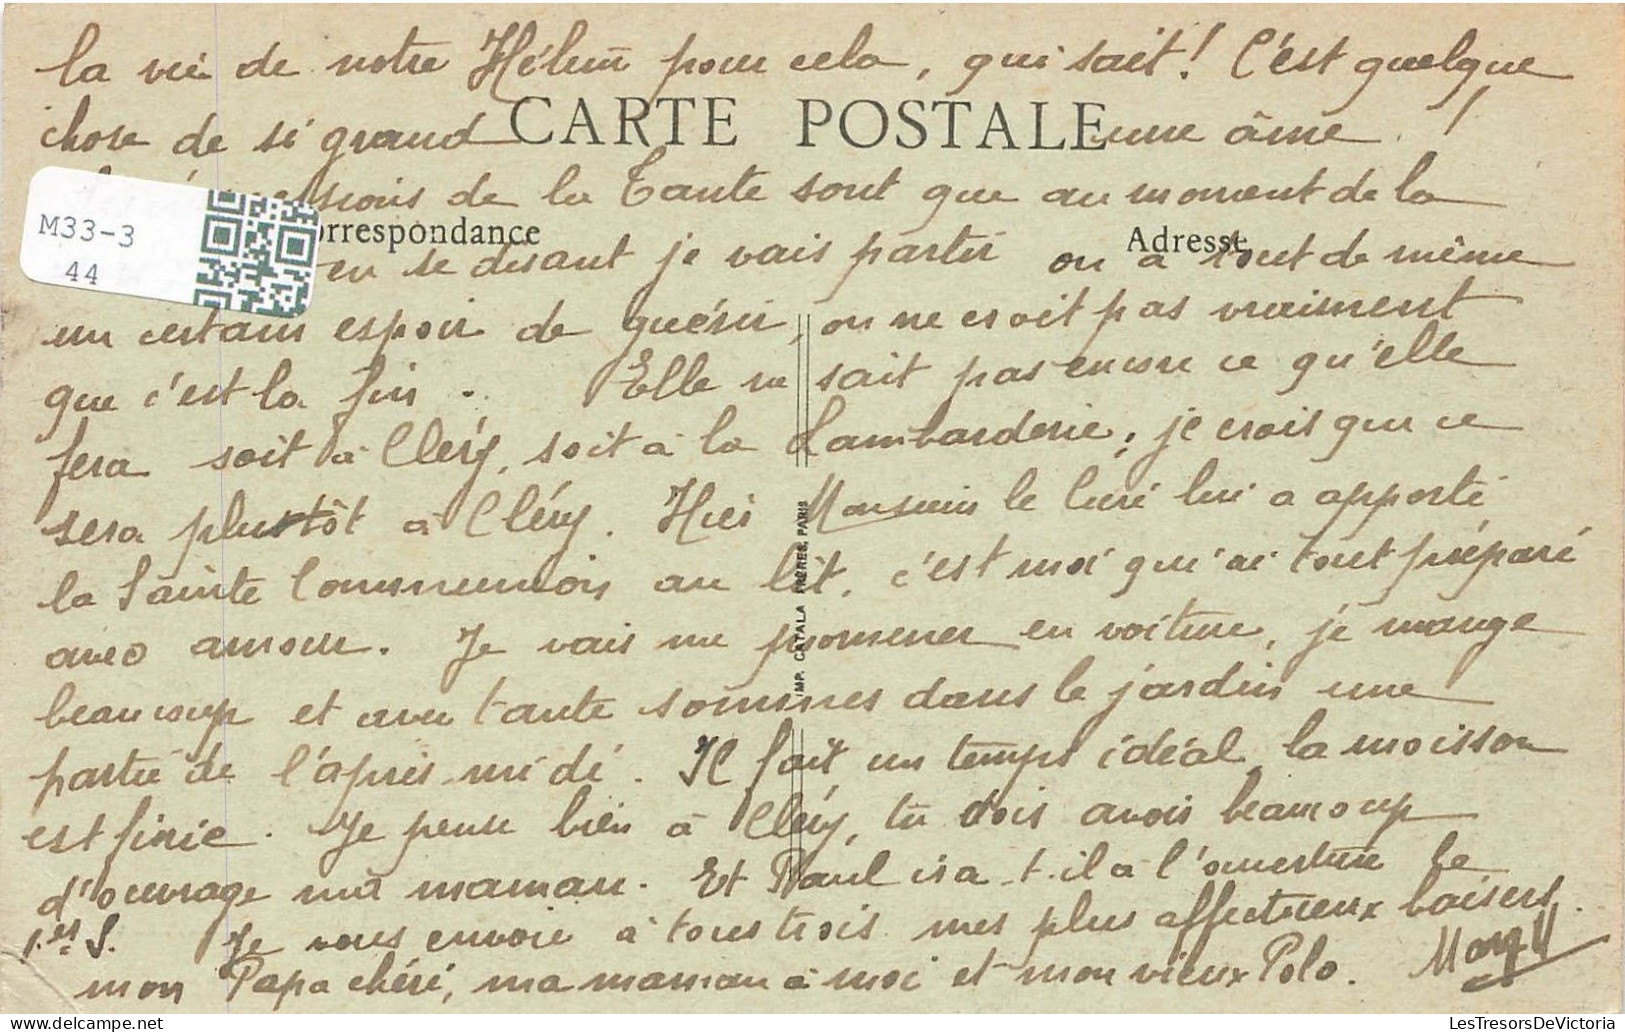 la vie de notre Hélène pour cela, qui sait! C'est quelque
chose de si grand une âme !
CARTE POSTALE
de la Tante sont que au moment de la
M33-3
44
orrespondance
Adresse
en se disant je vais partir on a tout de même
un certain espoir de guérir, on ne croit pas vraiment
que c'est la fin. Elle ne sait pas encore ce qu'elle
fera soit à Cléry, soit à la Lambarderie, je crois que ce
sera plustôt à Cléry. Hier Monsieur le Curé lui a apporté
la Sainte Communion au lit, c'est moi qu'ai tout préparé
avec amour. Je vais me promener en voiture, je mange
beaucoup et avec tante sommes dans le jardin une
partie de l'après midi. Il fait un temps idéal, la moisson
est finie. Je pense bien à Cléry, tu dois avoir beaucoup
d'ouvrage ma maman. Et Paul ira-t-il à l'ouverture le
1er S. Je vous envoie à tous trois mes plus affectueux baisers.
mon Papa chéri, ma maman à moi et mon vieux Polo.
IMP. CATALA FRÈRES, PARIS
LesTresorsDeVictoria